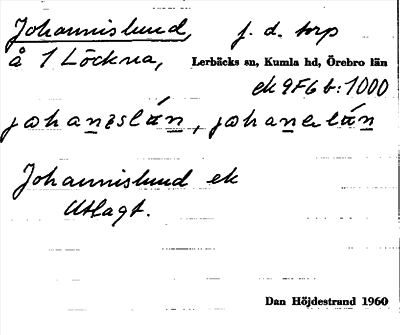 Johannislund, f. d. torp
å 1 Löckna, Lerbäcks sn, Kumla hd, Örebro län
ek 9F6b:1000
johaneslún, johanəlún
Johannislund ek
Utlagt.
Dan Höjdestrand 1960